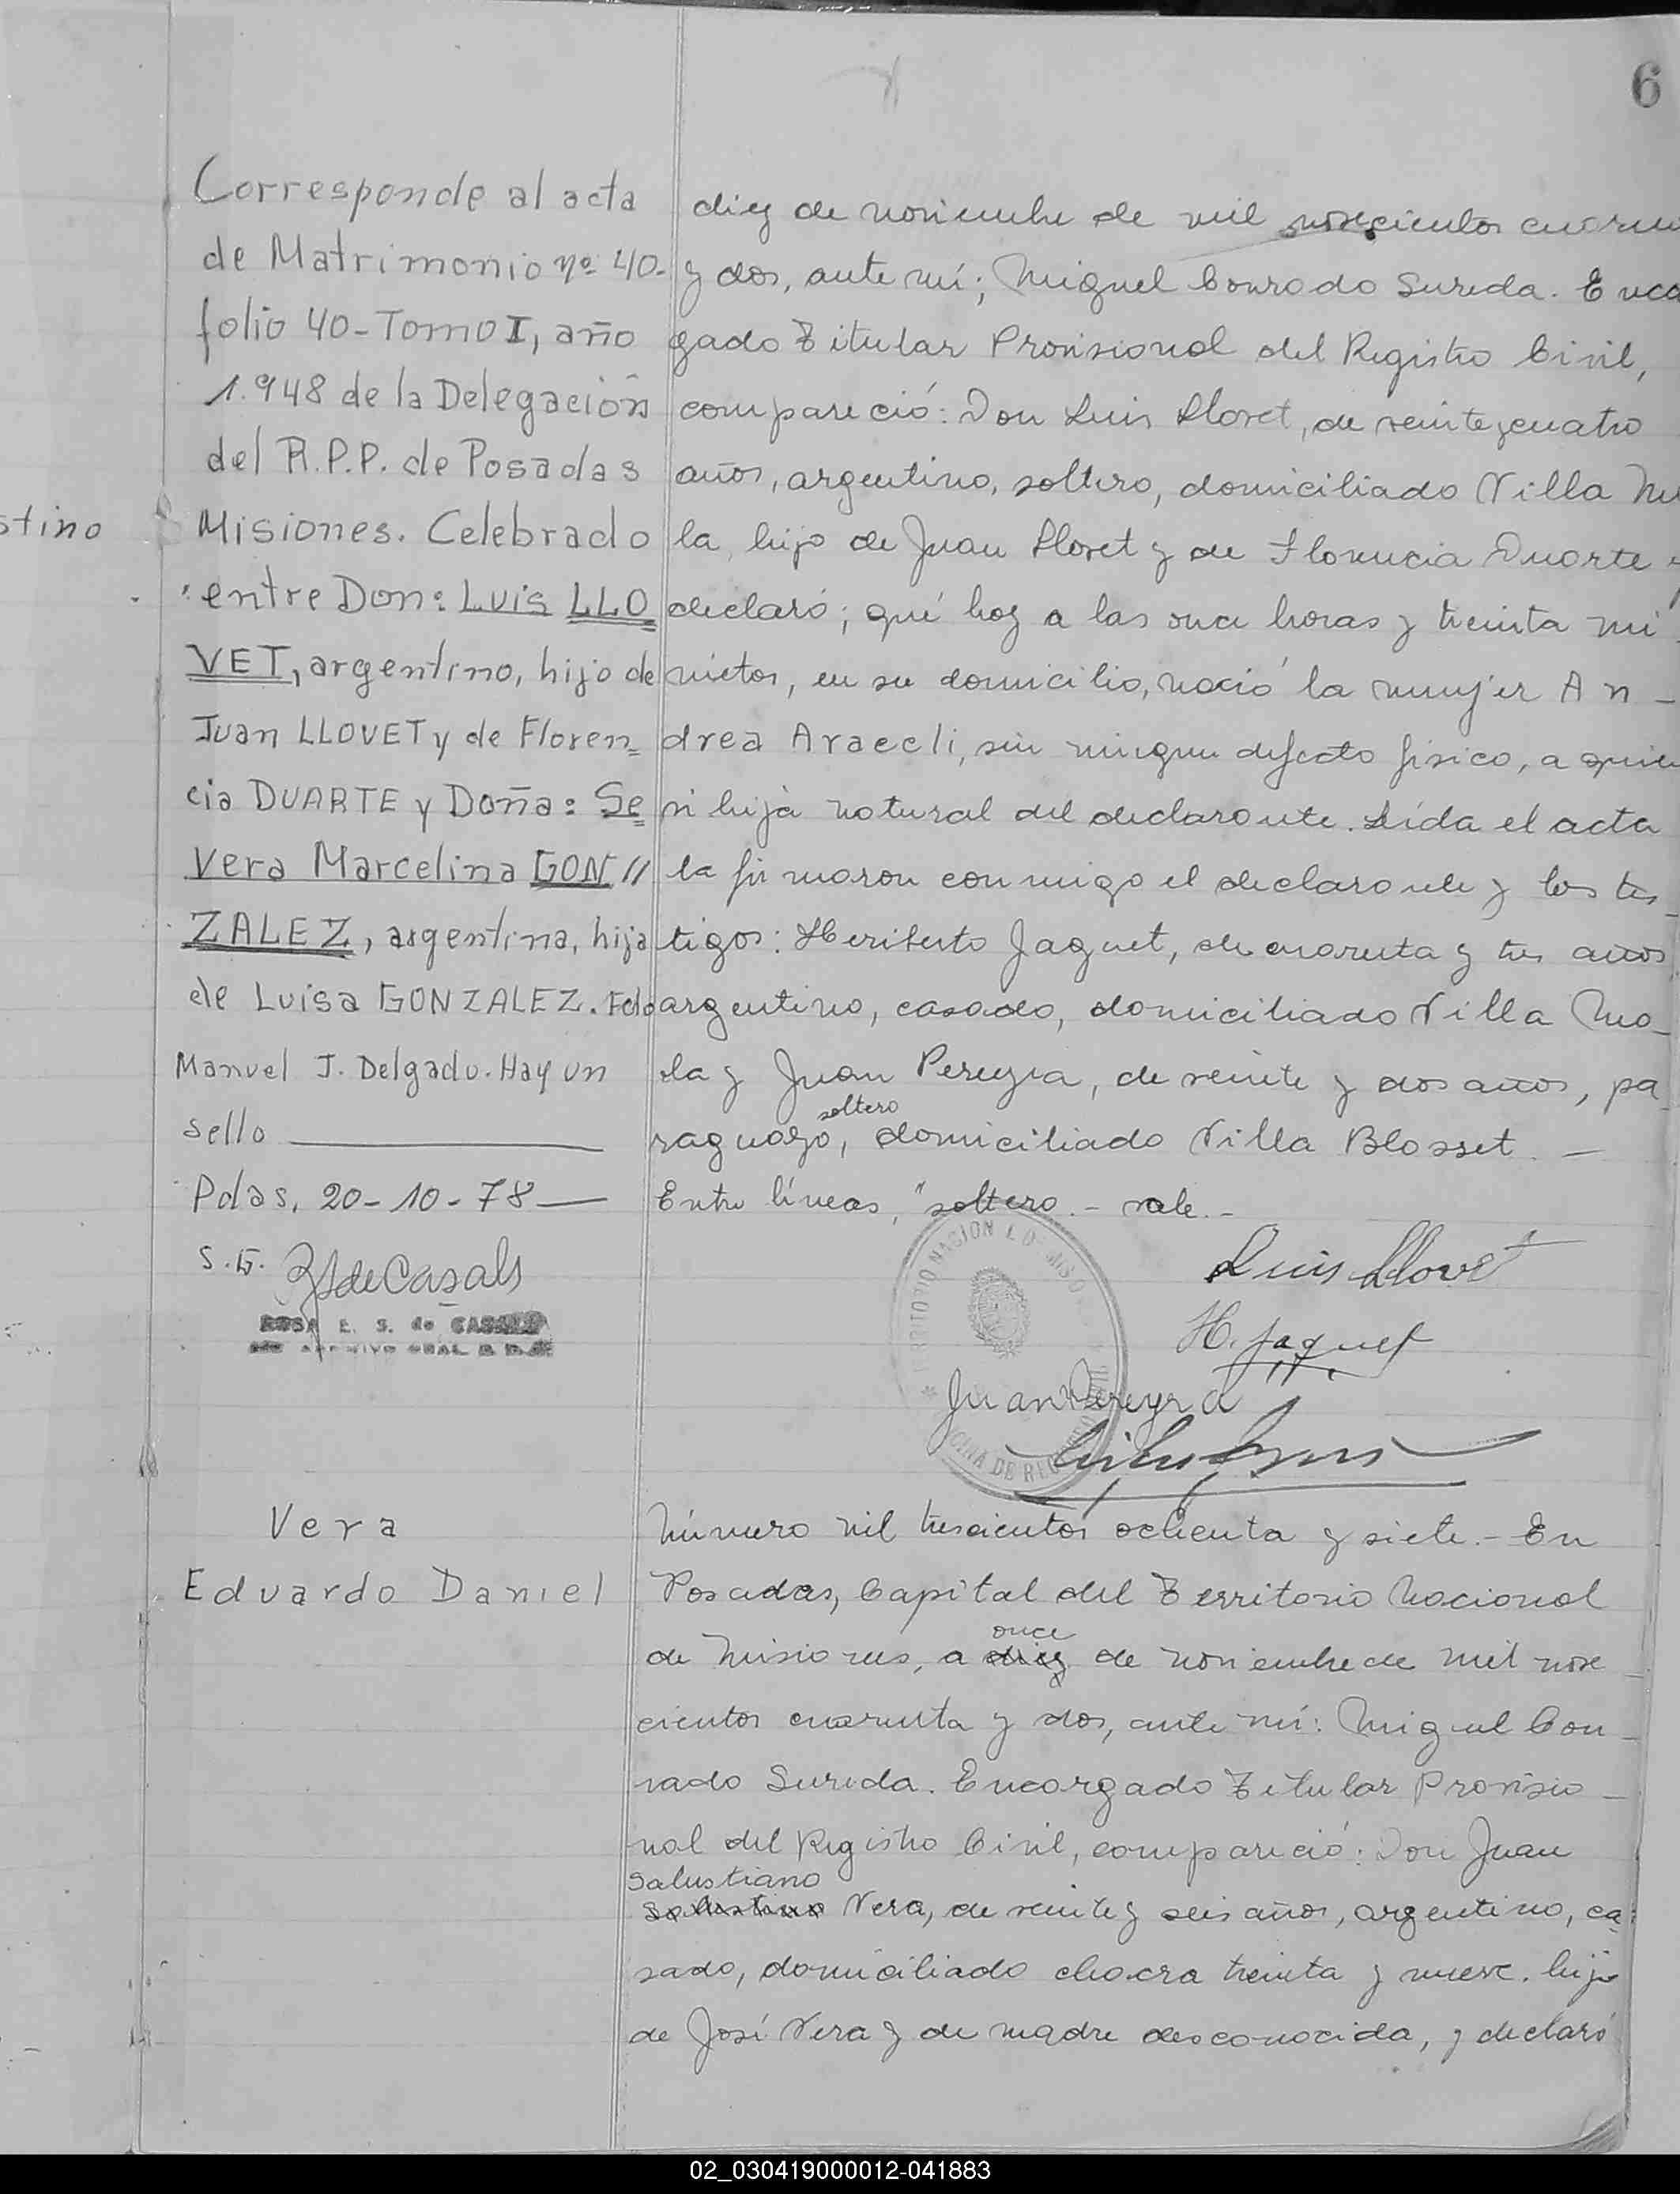 6
stino
Corresponde al acta
de Matrimonio nº 40-
folio 40-Tomo I, año
1.948 de la Delegación
del R.P.P. de Posadas
Misiones. Celebrado
entre Don: Luis LLO
VET, argentino, hijo de
Juan LLOVET y de Floren=
cia DUARTE y Doña: Se
vera Marcelina GON//
ZALEZ, argentina, hija
de Luisa GONZALEZ. Fdo
Manuel J. Delgado. Hay un
sello
Pdas, 20-10-78
S.G. de Casals
ROSA E. S. de CASALS
diez de noviembre de mil novecientos cuaren
y dos, ante mí; Miguel Conrado Sureda. Enca
gado Titular Provisional del Registro Civil,
compareció: Don Luis Llovet, de veinte y cuatro
años, argentino, soltero, domiciliado Villa Mo
la, hijo de Juan Llovet y de Florencia Duarte y
declaró; qué hoy a las once horas y treinta mi
nutos, en su domicilio, nació la mujer An-
drea Araceli, sin ningun defecto físico, a quien
hija natural del declarante. Leída el acta
la firmaron conmigo el declarante y los tes-
tigos: Heriberto Jaquet, de cuarenta y tres años,
argentino, casado, domiciliado Villa Mo-
la y Juan Pereyra, de veinte y dos años, pa
soltero
raguayo, domiciliado Villa Blosset. —
Entre líneas, "soltero.- vale.-
Luis Llovet
H. Jaquet
Juan Pereyra
TERRITORIO NACIONAL DE MISIONES
OFICINA DE REGISTRO CIVIL
Vera
Eduardo Daniel
Número mil trescientos ochenta y siete.- En
Posadas, Capital del Territorio Nacional
once
de Misiones, a diez de noviembre de mil nove
cientos cuarenta y dos, ante mí: Miguel Con-
rado Sureda. Encargado Titular Provisio-
nal del Registro Civil, compareció: Don Juan
Salustiano
Salustiano Vera, de veinte y seis años, argentino, ca=
sado, domiciliado chacra treinta y nueve. hijo
de José Vera y de madre desconocida, y declaró
02_030419000012-041883